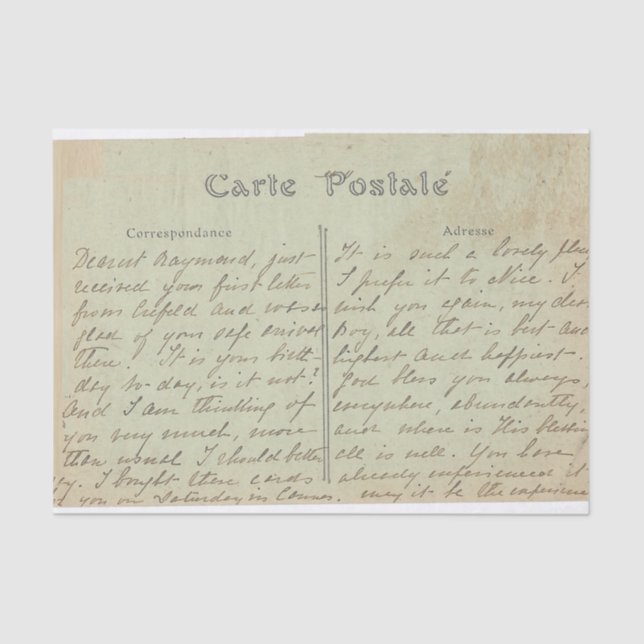 Carte Postale
Correspondance
Dearest Raymond, just
received your first letter
from Crefeld and was so
glad of your safe arrival
there. It is your birth-
day to-day, is it not?
And I am thinking of
you very much, more
than usual I should better
say. I bought these cards
for you on Saturday in Cannes.
Adresse
It is such a lovely place
I prefer it to Nice. I
wish you again, my dear
boy, all that is best and
highest and happiest.
God bless you always,
everywhere, abundantly,
and where is His blessing
all is well. You have
already experienced it
may it be the experience